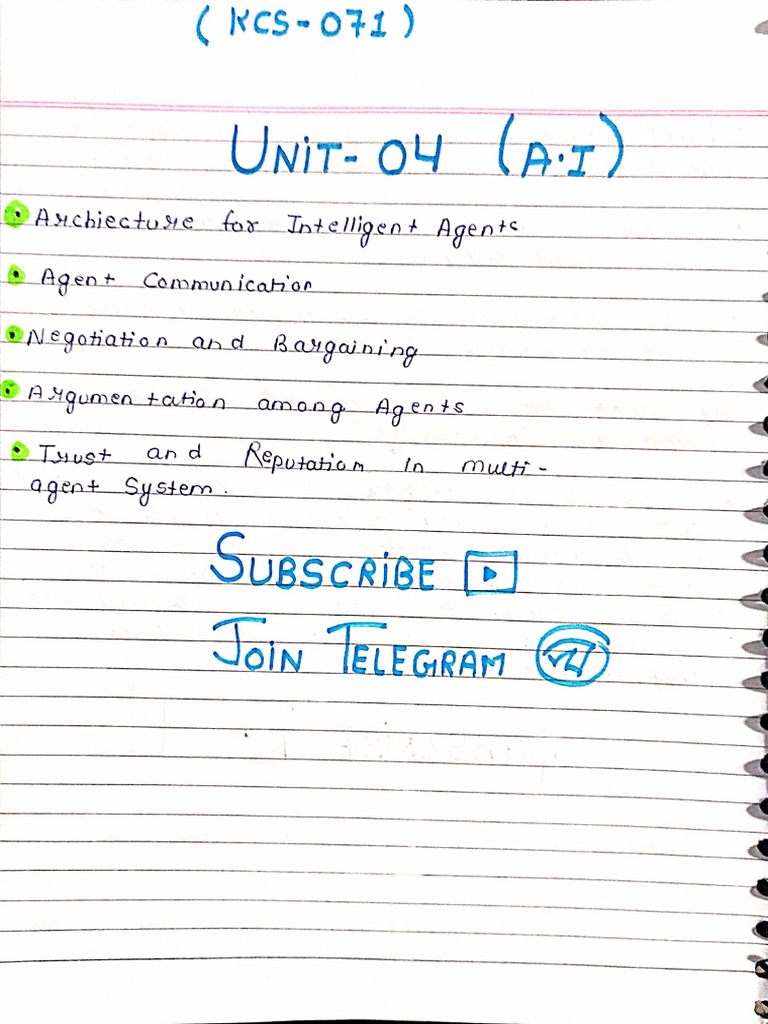 (KCS-071)
UNIT-04 (A.I)
Archiecture for Intelligent Agents
Agent Communication
Negotiation and Bargaining
Argumentation among Agents
Trust and Reputation in multi-
agent System.
SUBSCRIBE
JOIN TELEGRAM